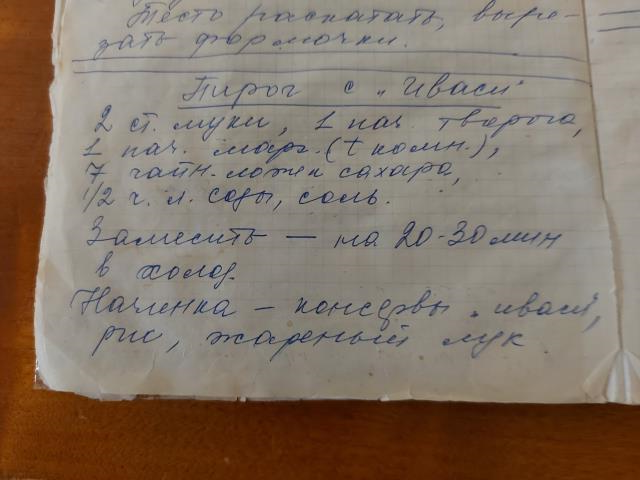 Тесто раскатать, выре-
зать формочки.
Пирог с „Иваси"
2 ст. муки, 1 пач. творога,
1 пач. марг. (t комн.),
7 чайн. ложек сахара,
1/2 ч. л. соды, соль.
Замесить — на 20-30 мин
в холод.
Начинка — консервы „иваси",
рис, жареный лук